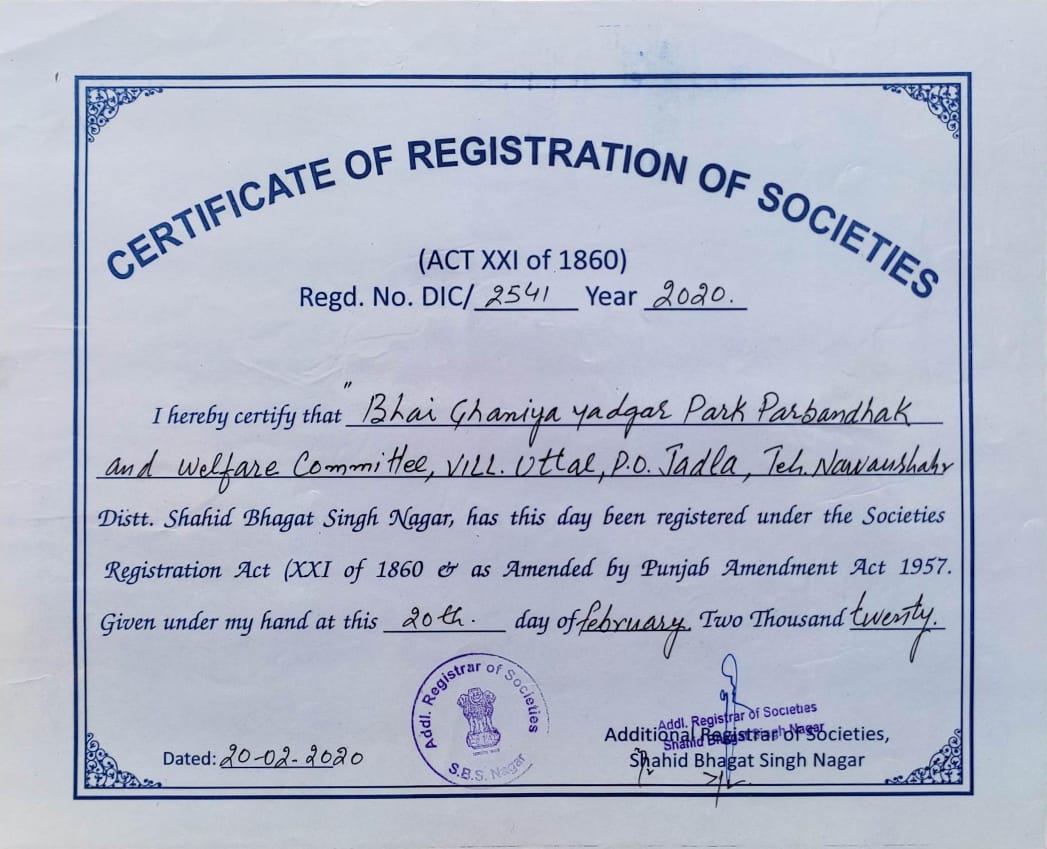 CERTIFICATE OF REGISTRATION OF SOCIETIES
(ACT XXI of 1860)
Regd. No. DIC/ 2541 Year 2020.
I hereby certify that "Bhai Ghaniya yadgar Park Parbandhak
and welfare Committee, VILL. Uttal, P.O. Jadla, Teh. Nawanshahr
Distt. Shahid Bhagat Singh Nagar, has this day been registered under the Societies
Registration Act (XXI of 1860 & as Amended by Punjab Amendment Act 1957.
Given under my hand at this 20th. day of february. Two Thousand twenty.
Addl. Registrar of Societies
S.B.S. Nagar
Addl. Registrar of Societies
Shahid Bhagat Singh Nagar
Additional Registrar of Societies,
Dated: 20-02-2020
Shahid Bhagat Singh Nagar